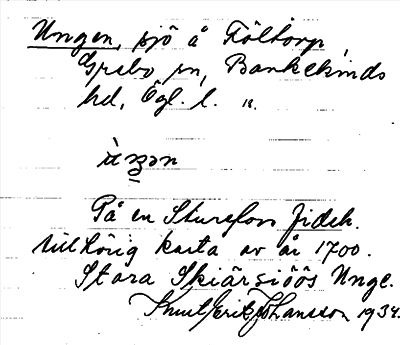 Ungen, sjö å Föltorp,
Grebo sn, Bankekinds
hd, Ögl. l.
På en Sturefors fidek.
tillhörig karta av år 1700.
Stora Skiärsiöös Unge.
Knut Erik Johansson 1934.